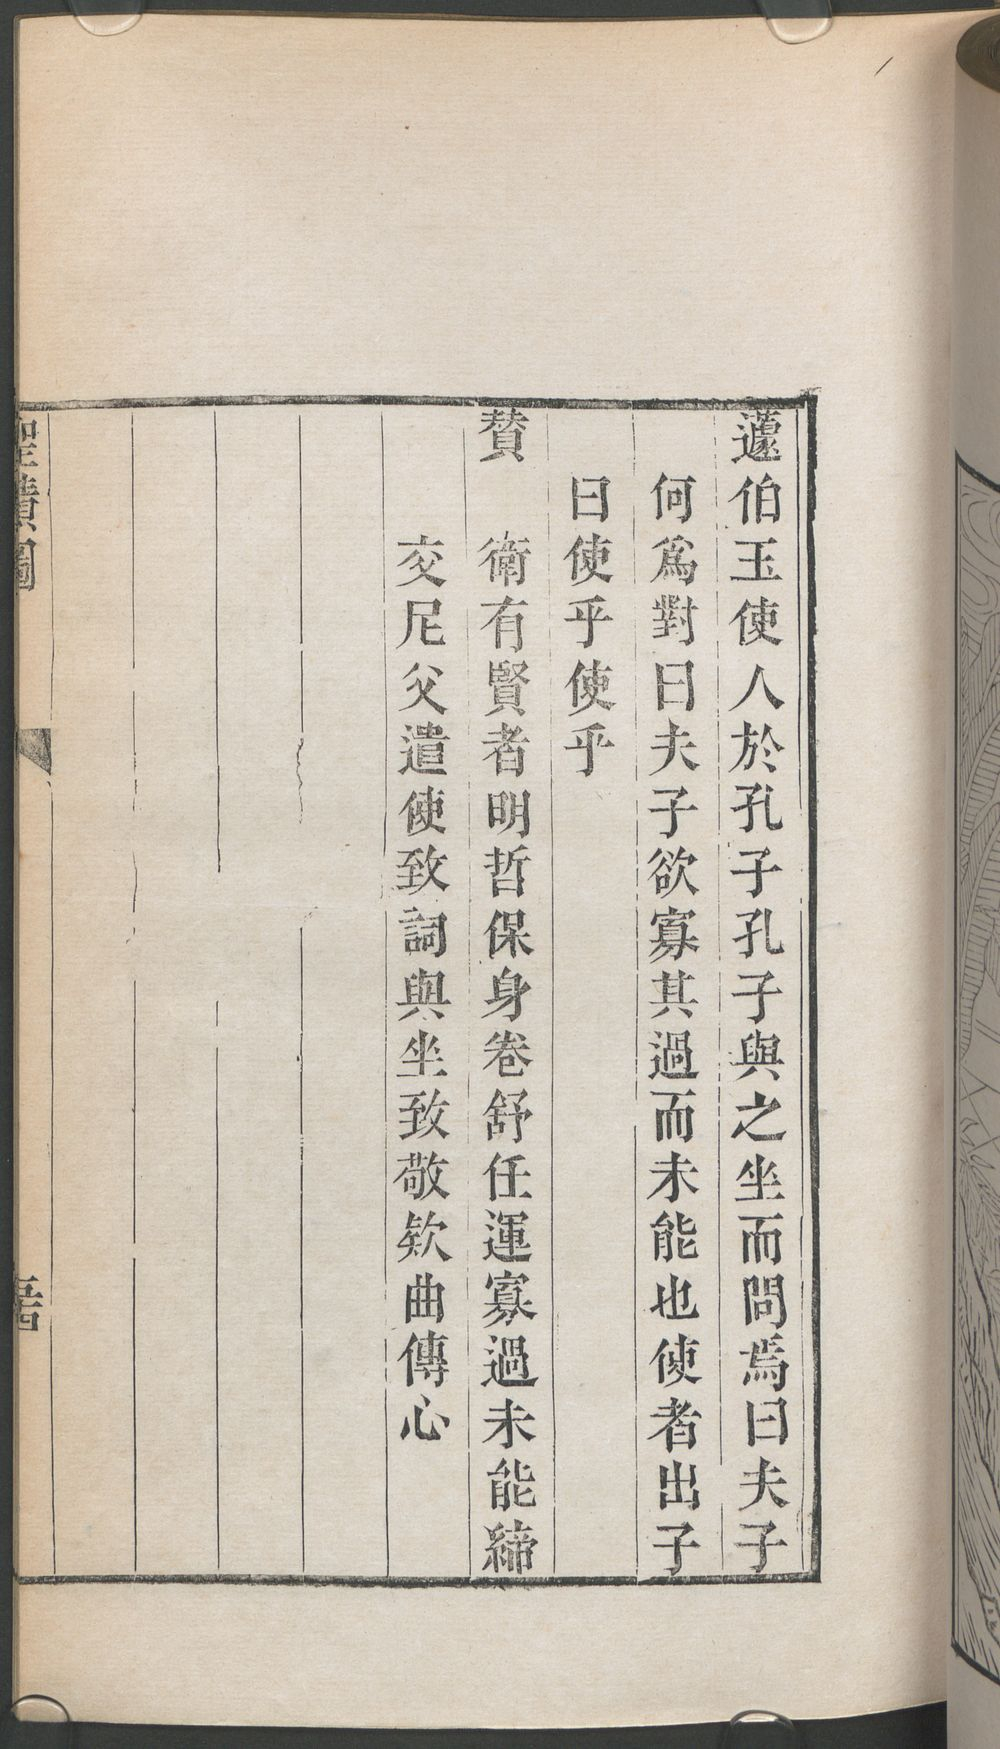 蘧伯玉使人於孔子孔子與之坐而問焉曰夫子
何爲對曰夫子欲寡其過而未能也使者出子
曰使乎使乎
贊　衛有賢者明哲保身卷舒任運寡過未能締
交尼父遣使致詞與坐致敬欵曲傳心
聖蹟圖